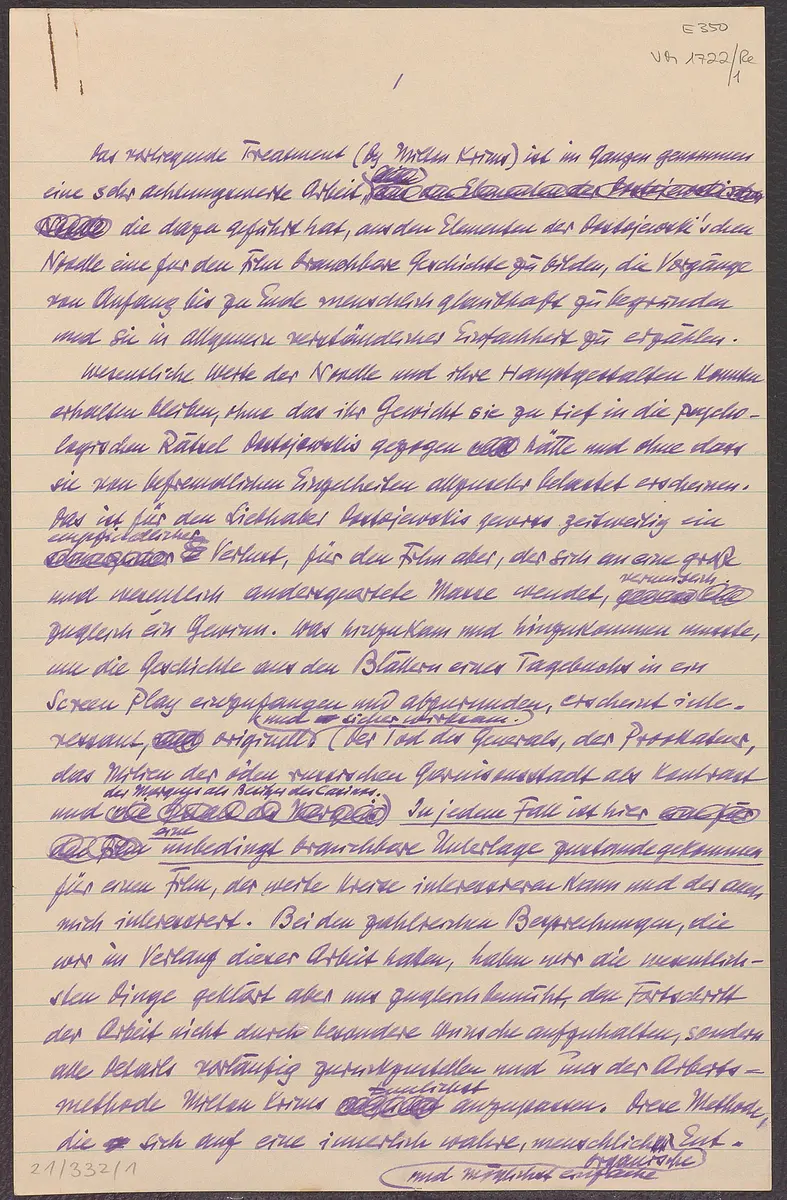 E 350
VM 1722/Re
1
1
Das vorliegende Treatment (by Milton Krims) ist im Ganzen genommen
eine sehr achtungswerte Arbeit, aus den Elementen der Dostojewskischen
Novelle die dazu geführt hat, aus den Elementen der Dostojewski'schen
Novelle eine für den Film brauchbare Geschichte zu bilden, die Vorgänge
von Anfang bis zu Ende menschlich glaubhaft zu begründen
und sie in allgemein verständlicher Einfachheit zu erzählen.
Wesentliche Werte der Novelle und ihre Hauptgestalten konnten
erhalten bleiben, ohne das ihr Gewicht sie zu tief in die psycho-
logischen Rätsel Dostojewskis gezogen hätte und ohne dass
sie von befremdlichen Einzelheiten allzusehr belastet erscheinen.
Das ist für den Liebhaber Dostojewskis gewiss zeitweilig ein
empfindlicher
Verlust, für den Film aber, der sich an eine große
und wesentlich andersgeartete Masse wendet,
zugleich ein Gewinn. Was hinzukam und hinzukommen musste,
um die Geschichte aus den Blättern eines Tagebuchs in ein
Screen Play einzufangen und abzurunden, erscheint inte-
und sicher wirksam.
ressant, originell (Der Tod des Generals, der Prokateur,
das Milieu der öden russischen Garnisonsstadt als Kontrast
des Marquis als Besitzer des Casinos.
und die des Marquis) In jedem Fall ist hier
eine
unbedingt brauchbare Unterlage zustandegekommen
für einen Film, der weite Kreise interessieren kann und der auch
mich interessiert. Bei den zahlreichen Besprechungen, die
wir im Verlauf dieser Arbeit hatten, haben wir die wesentlich-
sten Dinge geklärt aber uns zugleich bemüht, den Fortschritt
der Arbeit nicht durch besondere Wünsche aufzuhalten, sondern
alle Details vorläufig zurückzustellen und uns der Arbeits-
tunlichst
methode Milton Krims anzupassen. Diese Methode,
die sich auf eine innerlich wahre, menschliche Ent-
organische
und möglichst einfache
21/332/1